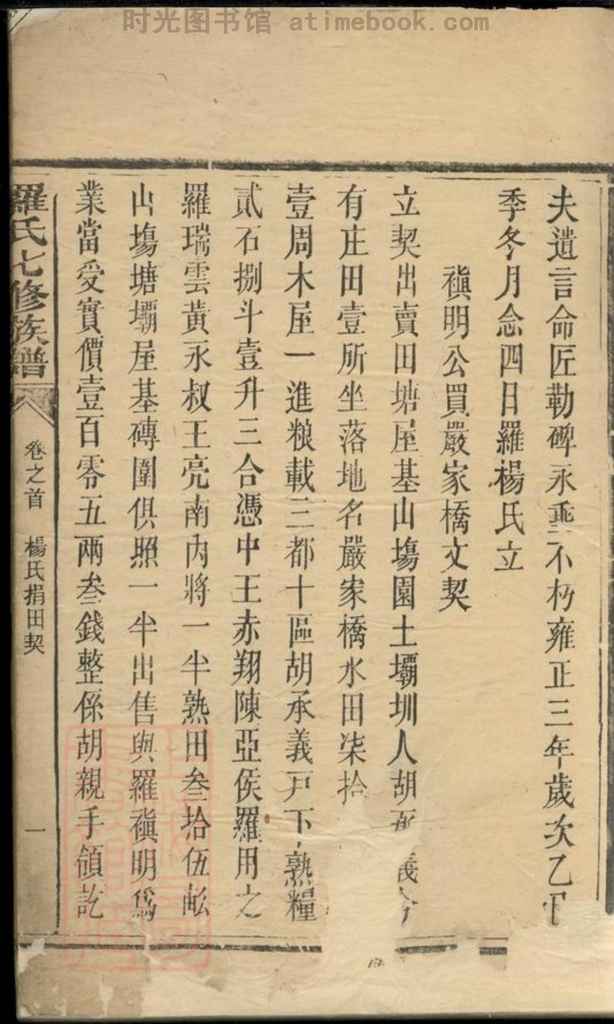 时光图书馆 atimebook.com
夫遺言命匠勒碑永垂不朽雍正三年歲次乙
季冬月念四日羅楊氏立
禛明公買嚴家橋文契
立契出賣田塘屋基山塲園土壩圳人胡 義今
有庄田壹所坐落地名嚴家橋水田柒拾
壹周木屋一進粮載三都十區胡承義戸下熟糧
貳石捌斗壹升三合憑中王赤翔陳亞侯羅用之
羅瑞雲黃永叔王亮南內將一半熟田叁拾伍畝
出塲塘壩屋基磚圍俱照一半出售與羅禛明爲
業當受實價壹百零五兩叁錢整係胡親手領訖
羅氏七修族譜 卷之首 楊氏捐田契 一